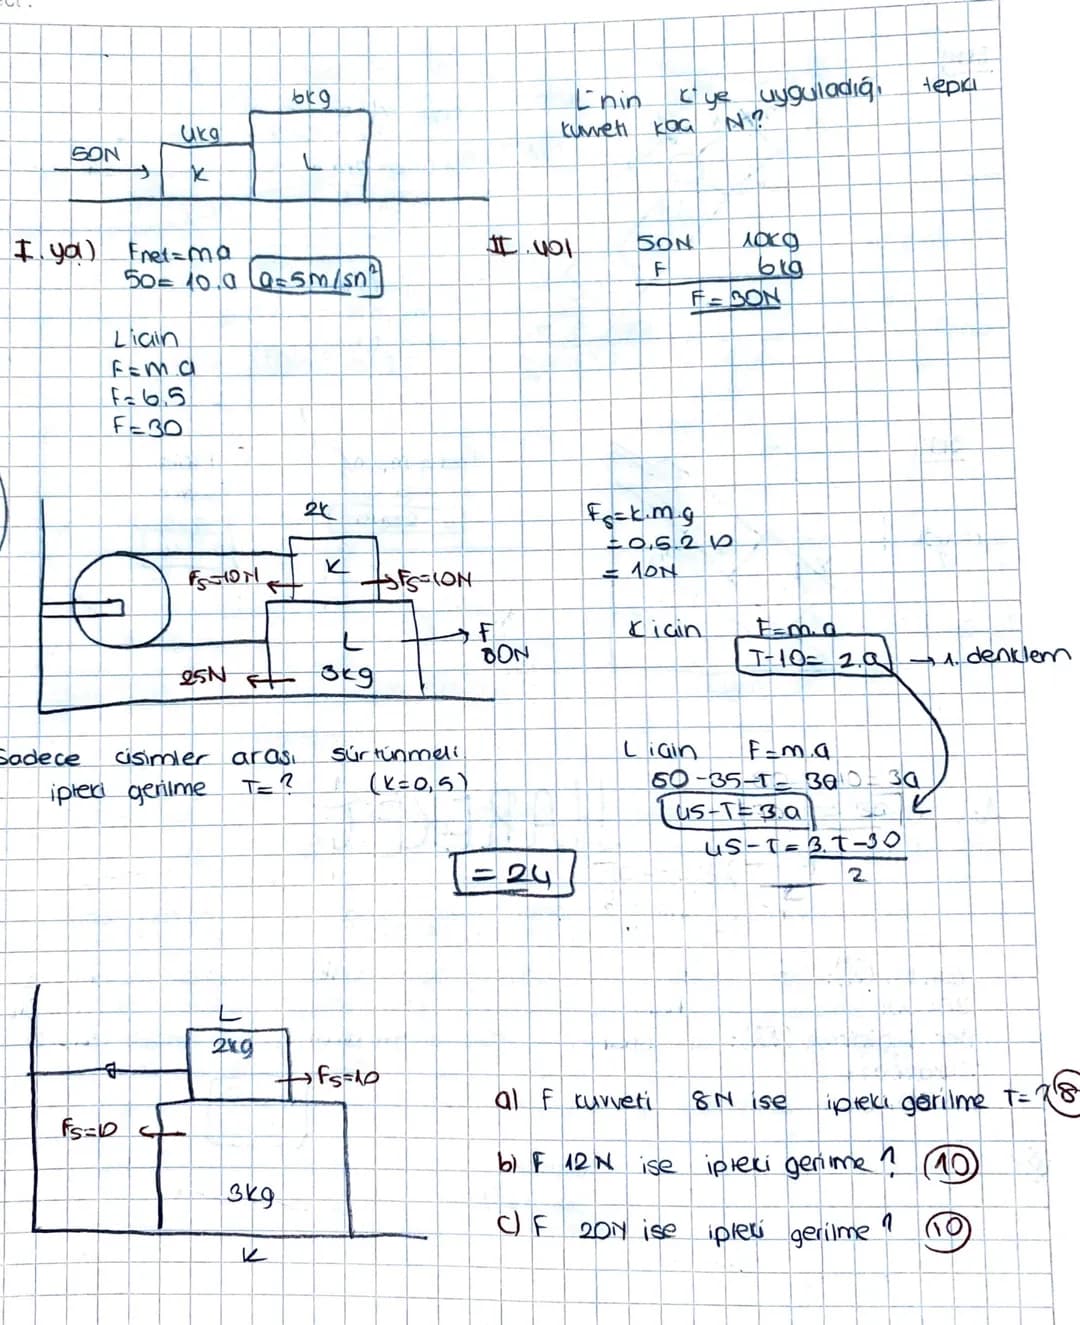 6kg
L'nin K'ye uyguladığı tepki
kuvveti kaç N?
4kg
50N
K
L
I. yol) Fnet=ma
50= 10.a a=5m/sn²
II. yol
50N 10kg
F 6kg
F=30N
L için
F=m.a
F=6.5
F=30
2k
K
Fs=10N
Fs=10N
L
3kg
F
80N
25N
Fs=k.m.g
=0,5.2 10
= 10N
K için F=m.a
T-10= 2.a → 1. denklem
Sadece cisimler arası sürtünmeli
ipteki gerilme T=? (k=0,5)
L için F=m.a
-35-T= 3a
45-T=3.a
45-T= 3.T-30
2
= 24
L
2kg
Fs=10
Fs=10
3kg
K
a) F kuvveti 8N ise ipteki gerilme T=? 8
b) F 12N ise ipteki gerilme? 10
c) F 20N ise ipteki gerilme? 10